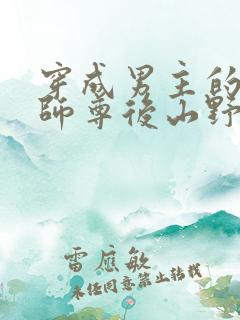 穿成男主的
師尊後山野
雷應敏
未经同意禁止转载